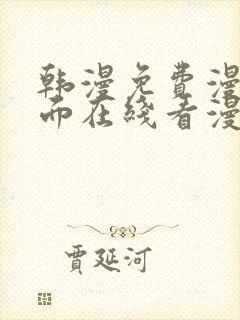 韩漫免费漫
而在线看漫
贾延河